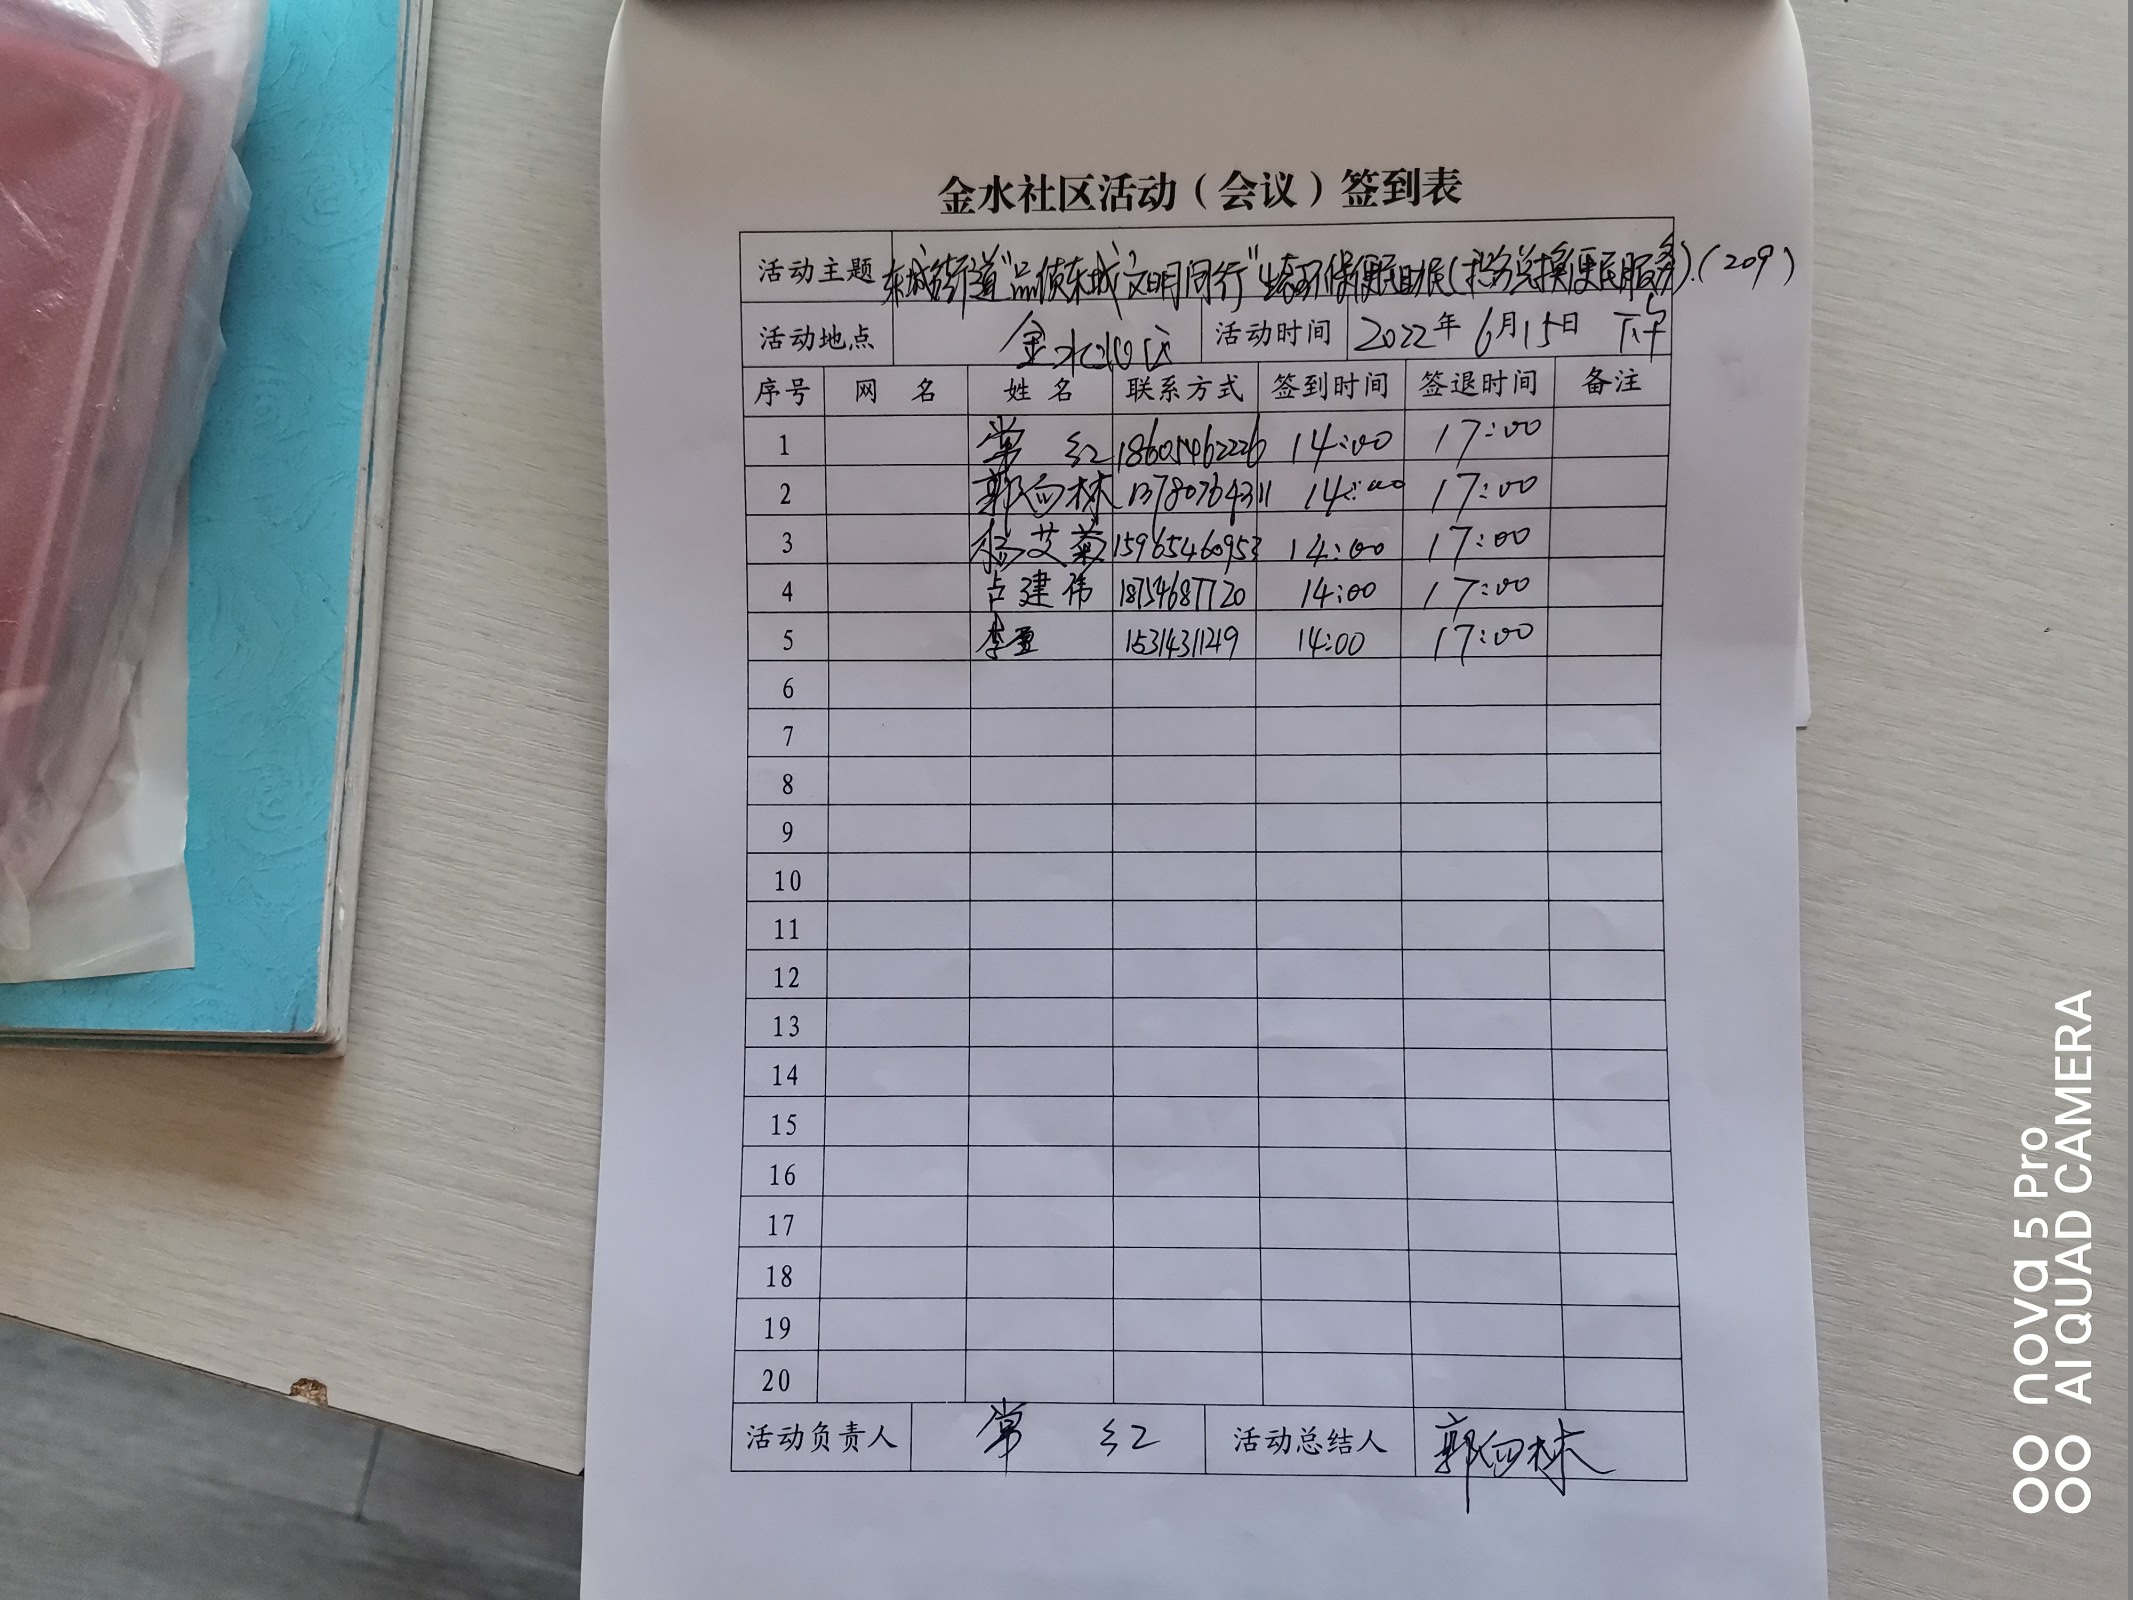 金水社区活动（会议）签到表
活动主题 东城街道"品质东城 文明同行"生态环保便民助民(积分兑换便民服务).(209)
活动地点 金水社区 活动时间 2022年 6月15日 下午
序号 网 名 姓 名 联系方式 签到时间 签退时间 备注
1 常 红 18605462226 14:00 17:00
2 郭向林 13780764311 14:00 17:00
3 杨艾菊 15965460953 14:00 17:00
4 占建伟 18754687720 14:00 17:00
5 李 15314311219 14:00 17:00
6
7
8
9
10
11
12
13
14
15
16
17
18
19
20
活动负责人 常 红 活动总结人 郭向林
nova 5 Pro
AI QUAD CAMERA